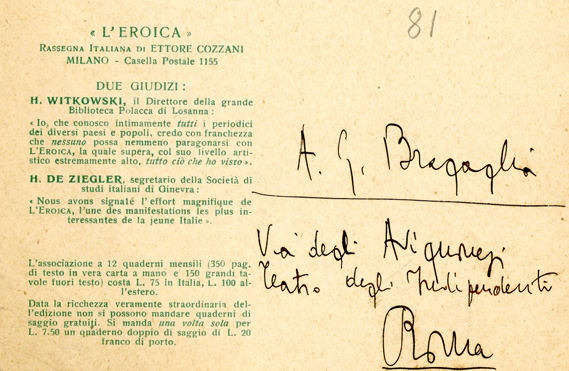 « L'EROICA »
RASSEGNA ITALIANA DI ETTORE COZZANI
MILANO - Casella Postale 1155
DUE GIUDIZI :
H. WITKOWSKI, il Direttore della grande
Biblioteca Polacca di Losanna :
« Io, che conosco intimamente tutti i periodici
dei diversi paesi e popoli, credo con franchezza
che nessuno possa nemmeno paragonarsi con
L'EROICA, la quale supera, col suo livello arti-
stico estremamente alto, tutto ciò che ho visto ».
H. DE ZIEGLER, segretario della Società di
studi italiani di Ginevra :
« Nous avons signalé l'effort magnifique de
L'EROICA, l'une des manifestations les plus in-
teressantes de la jeune Italie ».
L'associazione a 12 quaderni mensili (350 pag.
di testo in vera carta a mano e 150 grandi ta-
vole fuori testo) costa L. 75 in Italia, L. 100 al-
l'estero.
Data la ricchezza veramente straordinaria del-
l'edizione non si possono mandare quaderni di
saggio gratuiti. Si manda una volta sola per
L. 7.50 un quaderno doppio di saggio di L. 20
franco di porto.
81
A. G. Bragaglia
Via degli Avignonesi
Teatro degli Indipendenti
Roma